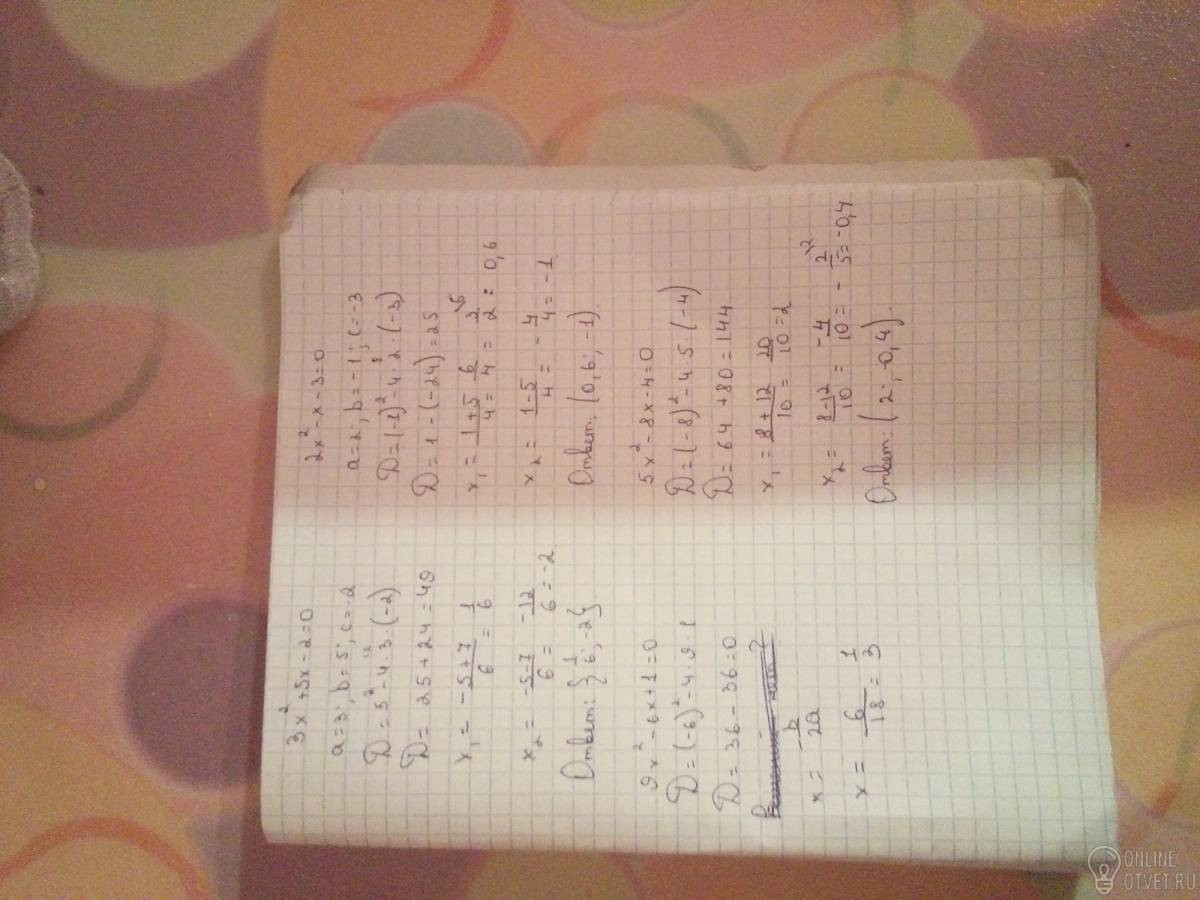 3x²+5x-2=0
a=3; b=5; c=-2
D=5²-4·3·(-2)
12
D=25+24=49
x₁= -5+7/6 = 1/6
x₂= -5-7/6 = -12/6 = -2
Ответ: {1/6; -2}.
9x²-6x+1=0
D=(-6)²-4·9·1
D=36-36=0
x= -b/2a
x= 6/18 = 1/3
2x²-x-3=0
a=2; b=-1; c=-3
D=(-1)²-4·2·(-3)
8
D=1-(-24)=25
x₁= 1+5/4 = 6/4 = 3/2 = 0,6
x₂= 1-5/4 = -4/4 = -1
Ответ: (0,6; -1).
5x²-8x-4=0
D=(-8)²-4·5·(-4)
D=64+80=144
x₁= 8+12/10 = 20/10 = 2
x₂= 8-12/10 = -4/10 = -2/5 = -0,4
Ответ: (2; -0,4).
ONLINE
OTVET.RU